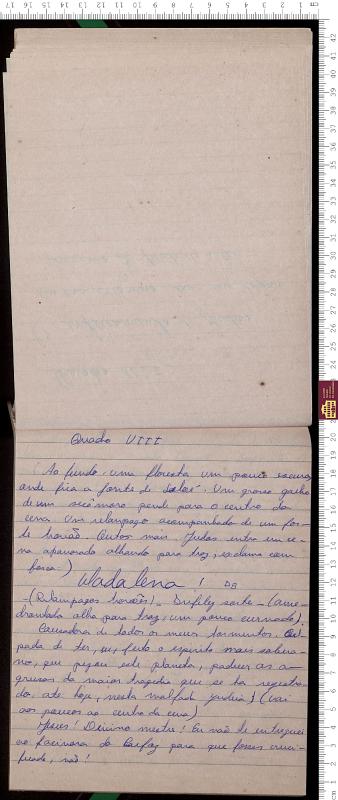 Quadro VIII
(Ao fundo uma floresta um pouco escura,
onde fica a fonte de Siloé. Um grosso galho
de um sicômoro pende para o centro da
cena. Um relampago acompanhado de um for-
te trovão. Outros mais. Judas entra em ce-
na apavorado olhando para traz, exclama com
força:)
Madalena!
-(Relampagos trovões).
olha para traz, um pouco curvado).
Causadora de todos os meus tormentos. Cul-
pada de ter, eu, feito o espirito mais sobera-
no, que pizou este planeta, padecer as a-
gruras da maior tragedia que se ha registra-
do, até hoje, nesta malfada Judeia! (vai
aos poucos ao centro da cena)
Jesus! Divino mestre! Eu não te entreguei
ao facinora do Caifaz para que fosses cruci-
ficado, não!